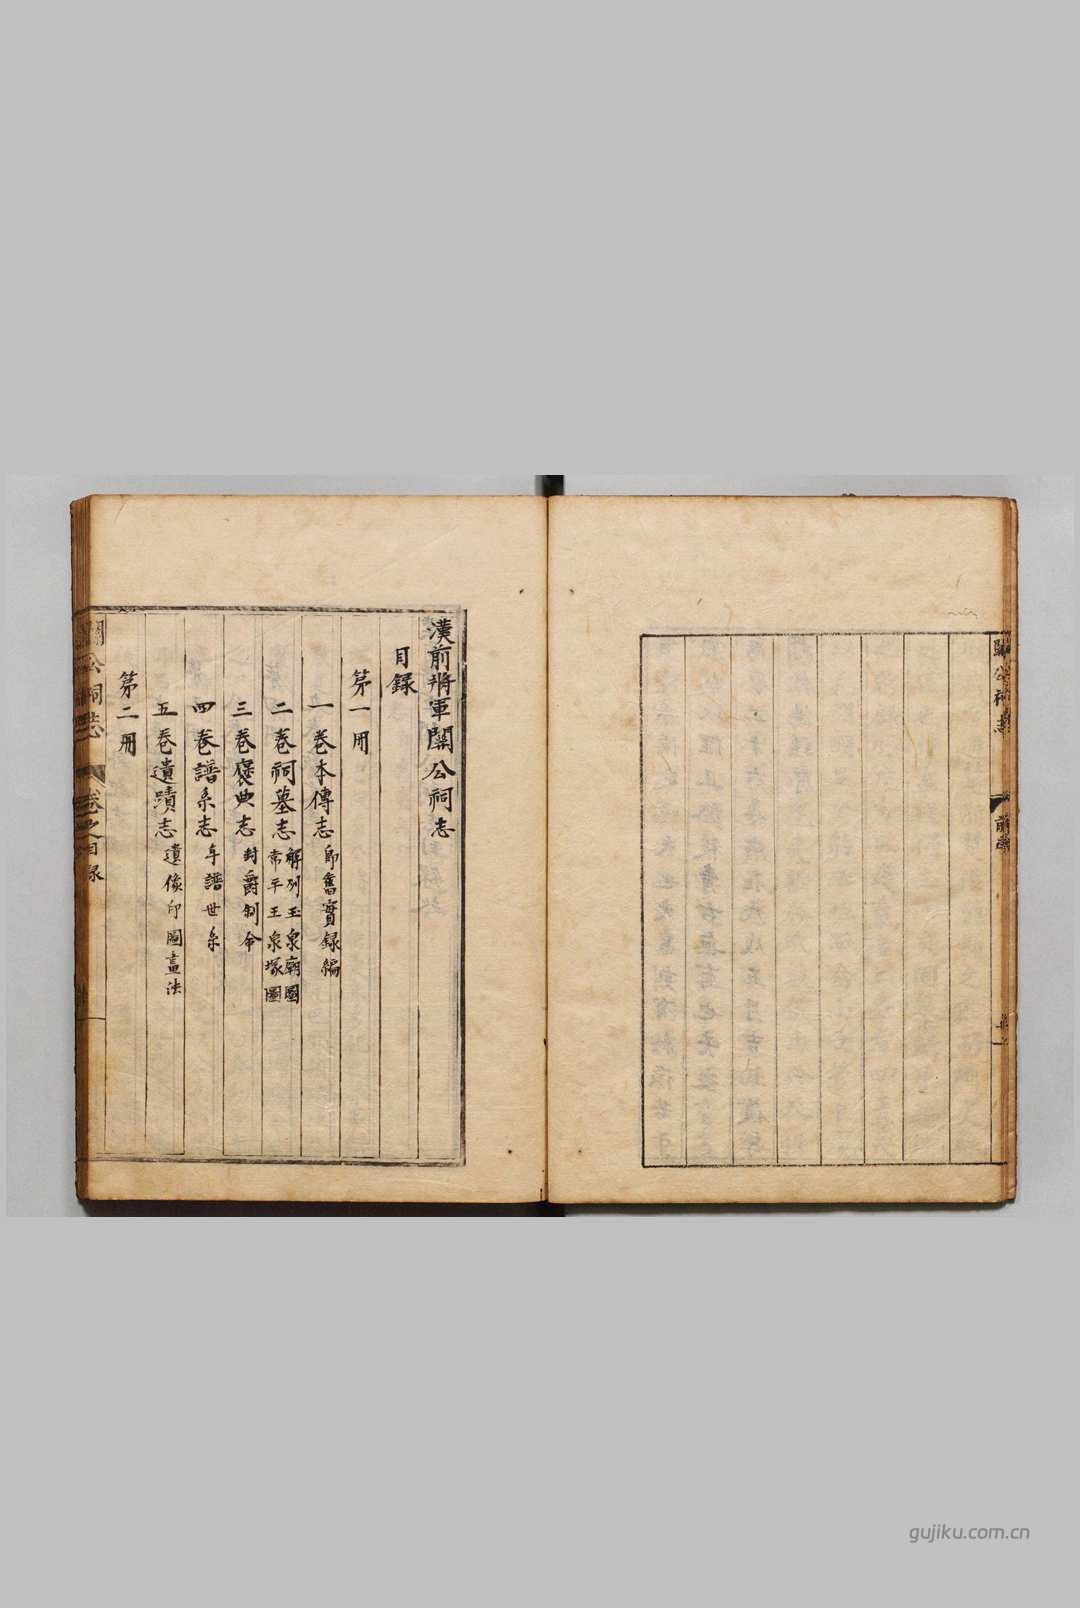 關公祠志
漢前將軍關公祠志
目録
第一冊
一卷本傳志 即舊實録編
二卷祠墓志 解列玉泉廟圖
常平王泉塚圖
三卷褒典志 封爵制命
四卷譜系志 年譜世系
五卷遺蹟志 遺像印圖畫法
第二冊
關公祠志 卷之目録
gujiku.com.cn